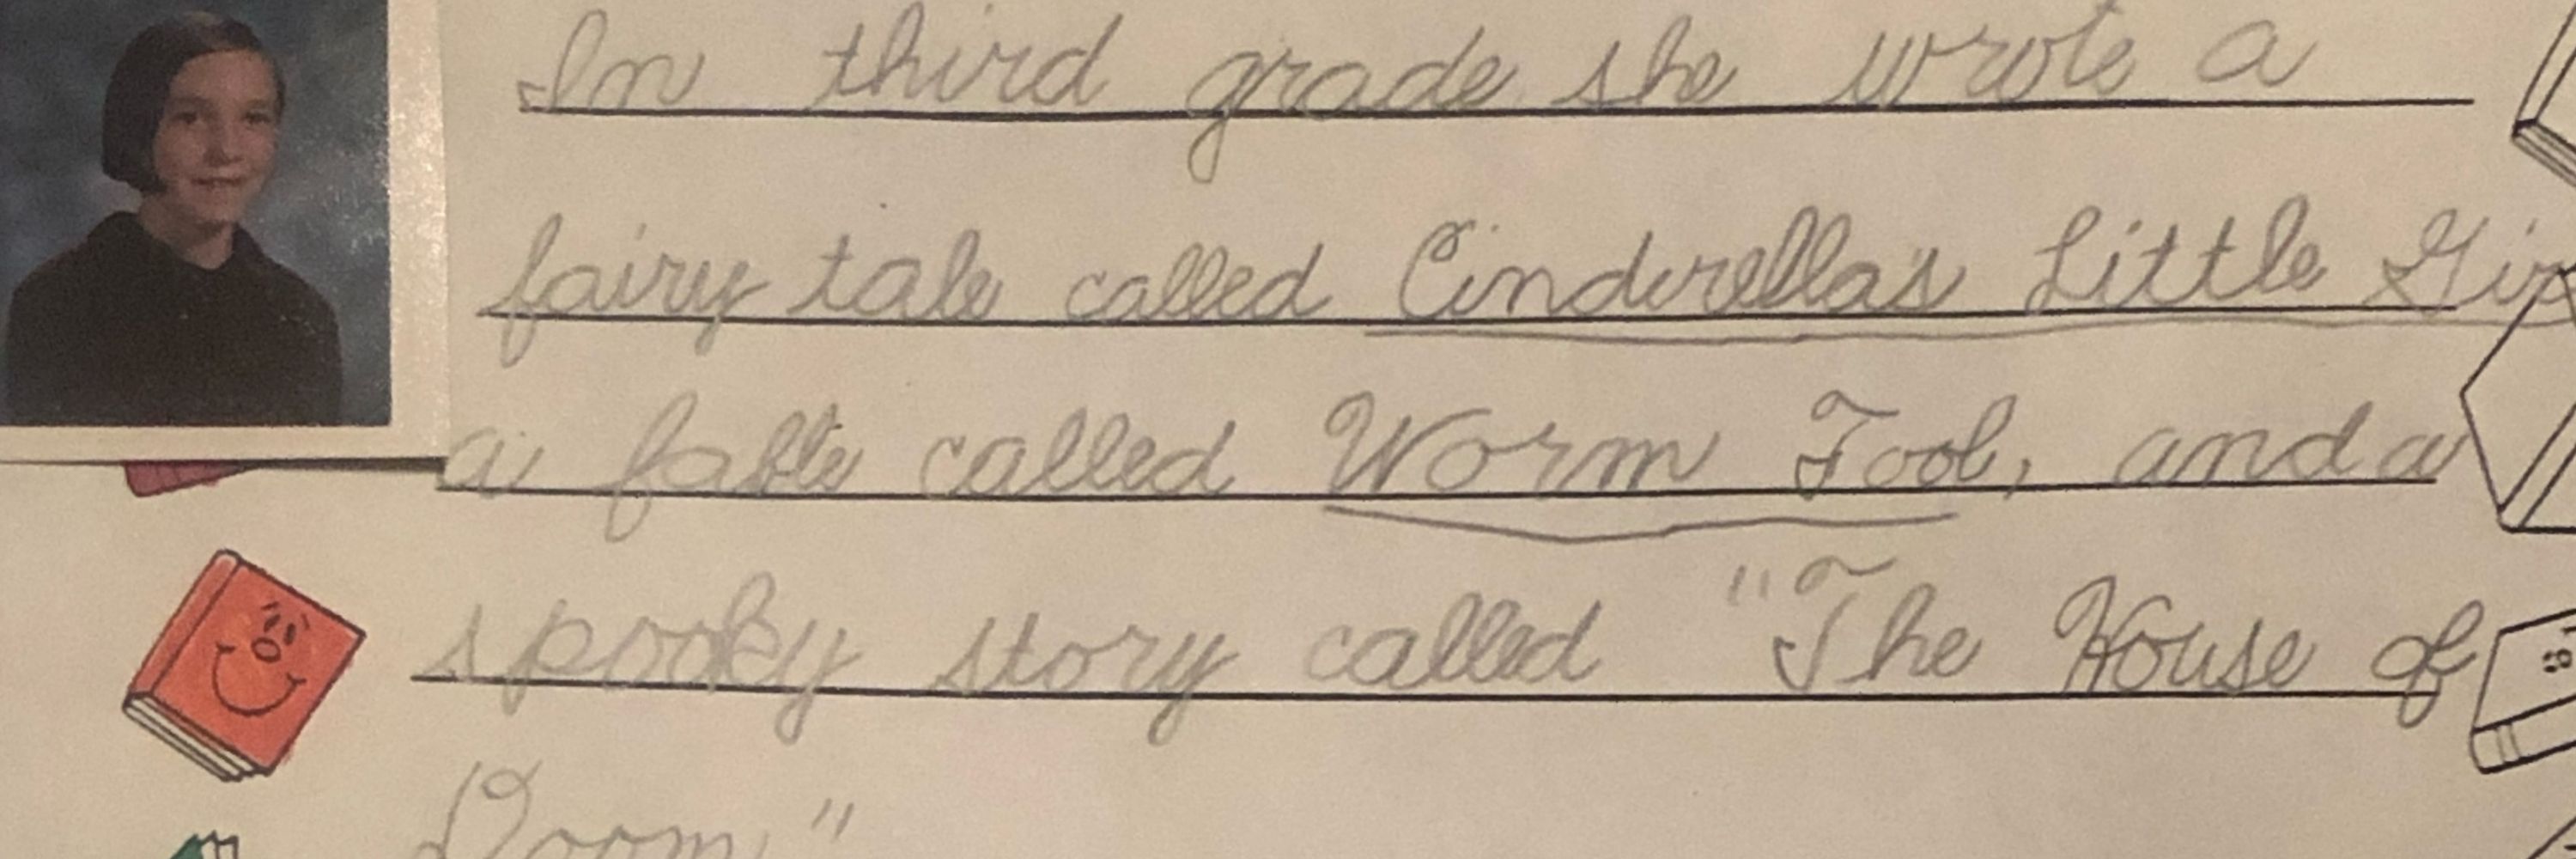 In third grade she wrote a
fairy tale called Cinderella's Little Gir
a fable called Worm Fool, and a
spooky story called "The House of
Doom"